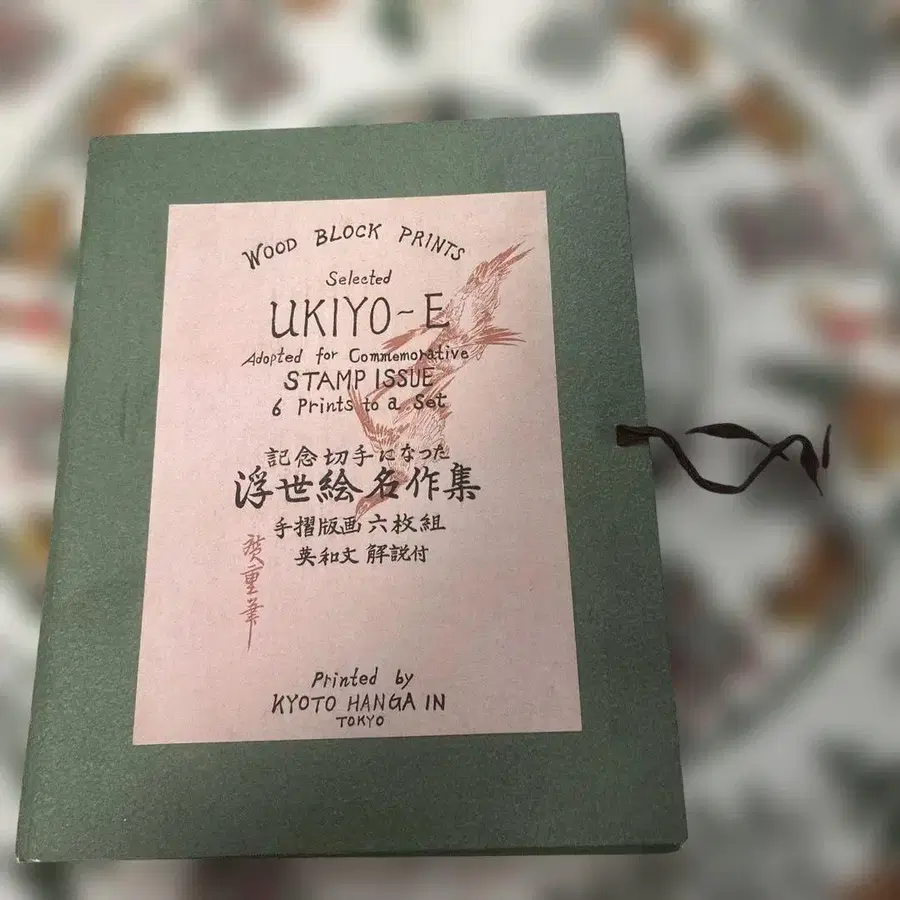 WOOD BLOCK PRINTS
Selected
UKIYO-E
Adopted for Commemorative
STAMP ISSUE
6 Prints to a Set
記念切手になった
浮世絵名作集
手摺版画六枚組
英和文解説付
廣重筆
Printed by
KYOTO HANGA IN
TOKYO